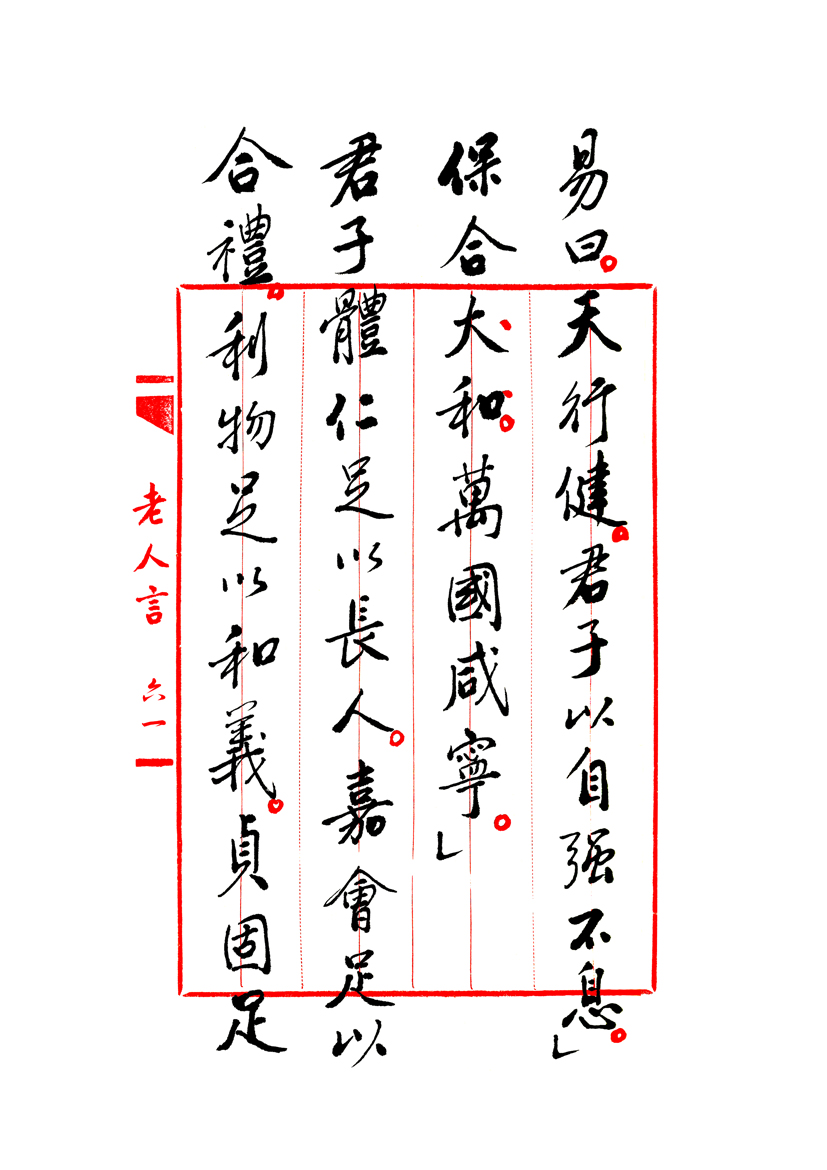 易曰。天行健。君子以自强不息。」
保合大和。萬國咸寧。」
君子體仁足以長人。嘉會足以
合禮。利物足以和義。貞固足
老人言 六一